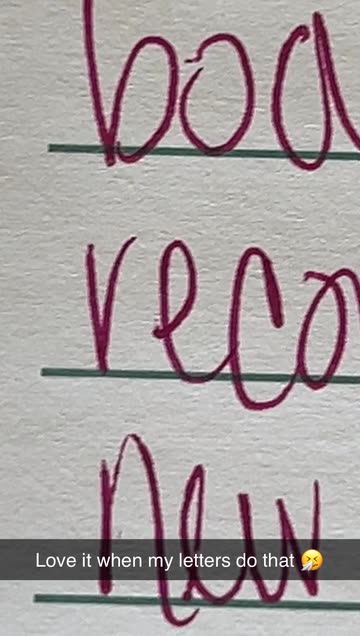 boa
reco
new
Love it when my letters do that 🤧